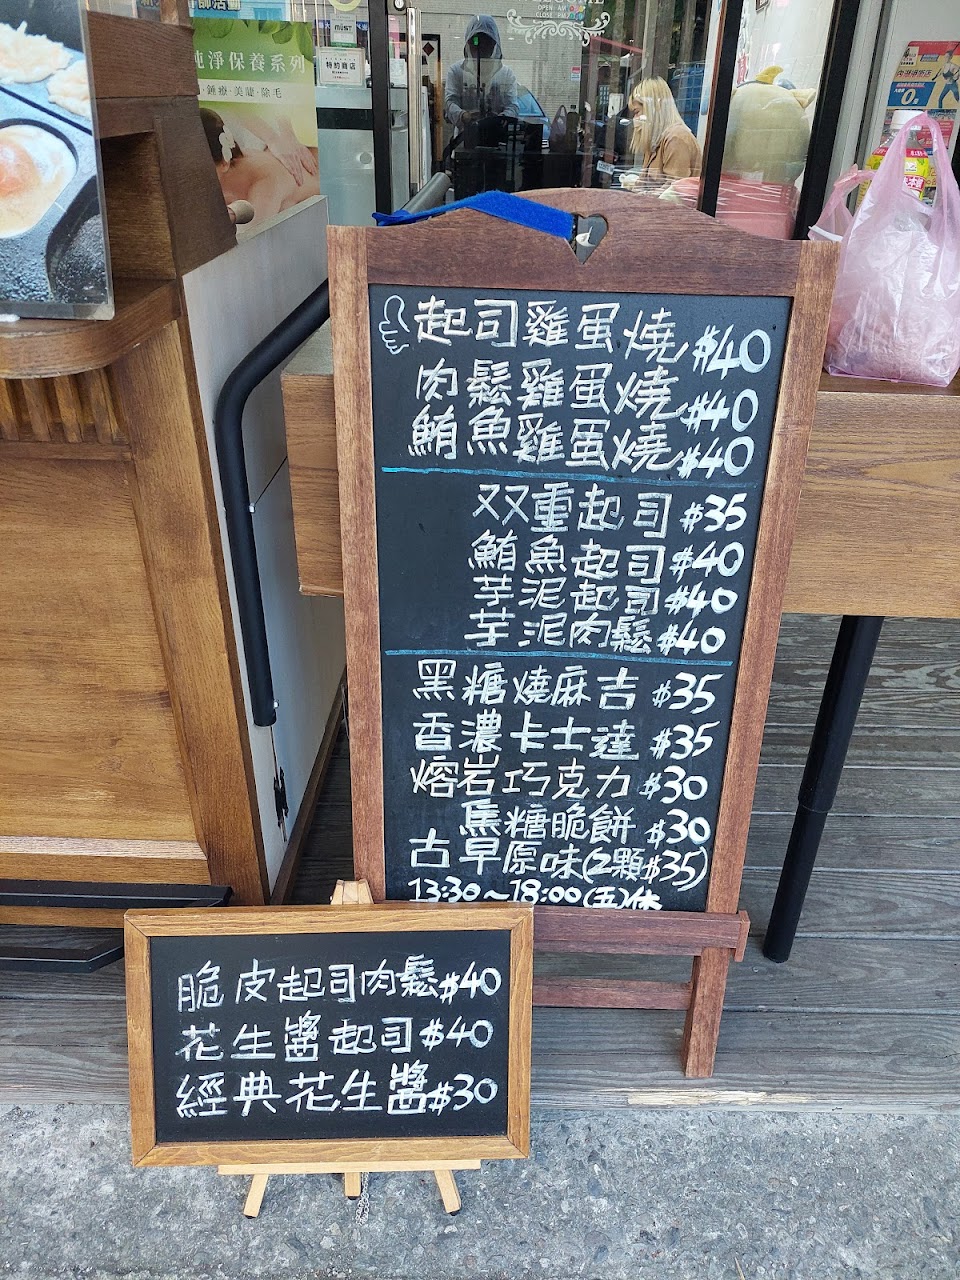 純淨保養系列
特約商店
OPEN AM
CLOSE PM
起司雞蛋燒 $40
肉鬆雞蛋燒 $40
鮪魚雞蛋燒 $40
双重起司 $35
鮪魚起司 $40
芋泥起司 $40
芋泥肉鬆 $40
黑糖燒麻吉 $35
香濃卡士達 $35
熔岩巧克力 $30
焦糖脆餅 $30
古早原味(2顆$35)
13:30~18:00(五)休
脆皮起司肉鬆$40
花生醬起司$40
經典花生醬$30